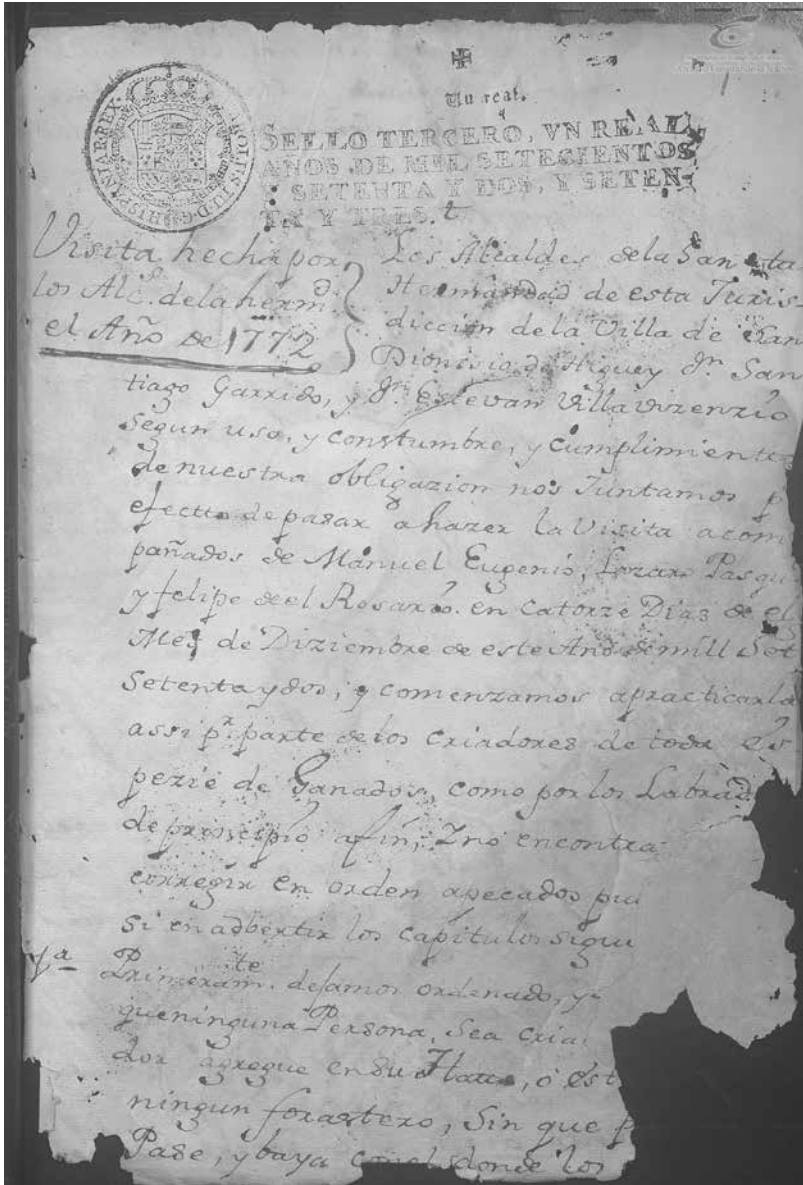 Un real.
SELLO TERCERO, VN REAL,
AÑOS DE MIL SETECIENTOS
Y SETENTA Y DOS, Y SETEN-
TA Y TRES.
CAROLUS III D G HISPANIAR REX
Visita hecha por
los Alc.s de la herm.d
el Año de 1772
Los Alcaldes de la Santa
Hermandad de esta Juris-
diccion de la Villa de San
Dionisio de Higuey Dn. San
tiago Garrido, y Dn. Estevan Villavizenzio
segun uso, y constumbre, y cumplimiento
de nuestra obligazion nos Juntamos p
efectto de pasar a hazer la Visita acom
pañados de Manuel Eugenio, Lozaro Pasqu
y felipe de el Rosario. en Catorze Dias de el
Mes de Diziembre de este Año de mill Set
Setenta y dos; y comenzamos a practicarla
assi pr. parte de los Criadores de toda es
pezie de Ganados, como por los Labrad
de principio a fin; Y no encontra
corregir en orden a pecados pu
si en adbertir los Capitulos sigu
1a Primeramte. dejamos ordenado, y
que ninguna Persona, Sea cria
dor agregue en su Hatto, ó est
ningun forastero, Sin que p
Pase, y baya donde los